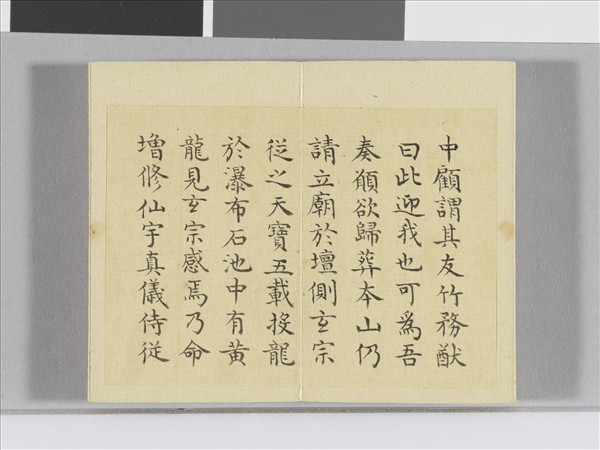 中顧謂其友竹務猷
曰此迎我也可為吾
奏願欲歸葬本山仍
請立廟於壇側玄宗
從之天寶五載投龍
於瀑布石池中有黄
龍見玄宗感焉乃命
增修仙宇真儀侍從